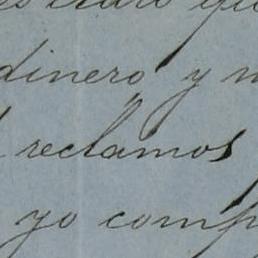 dinero y
reclamos
yo comp